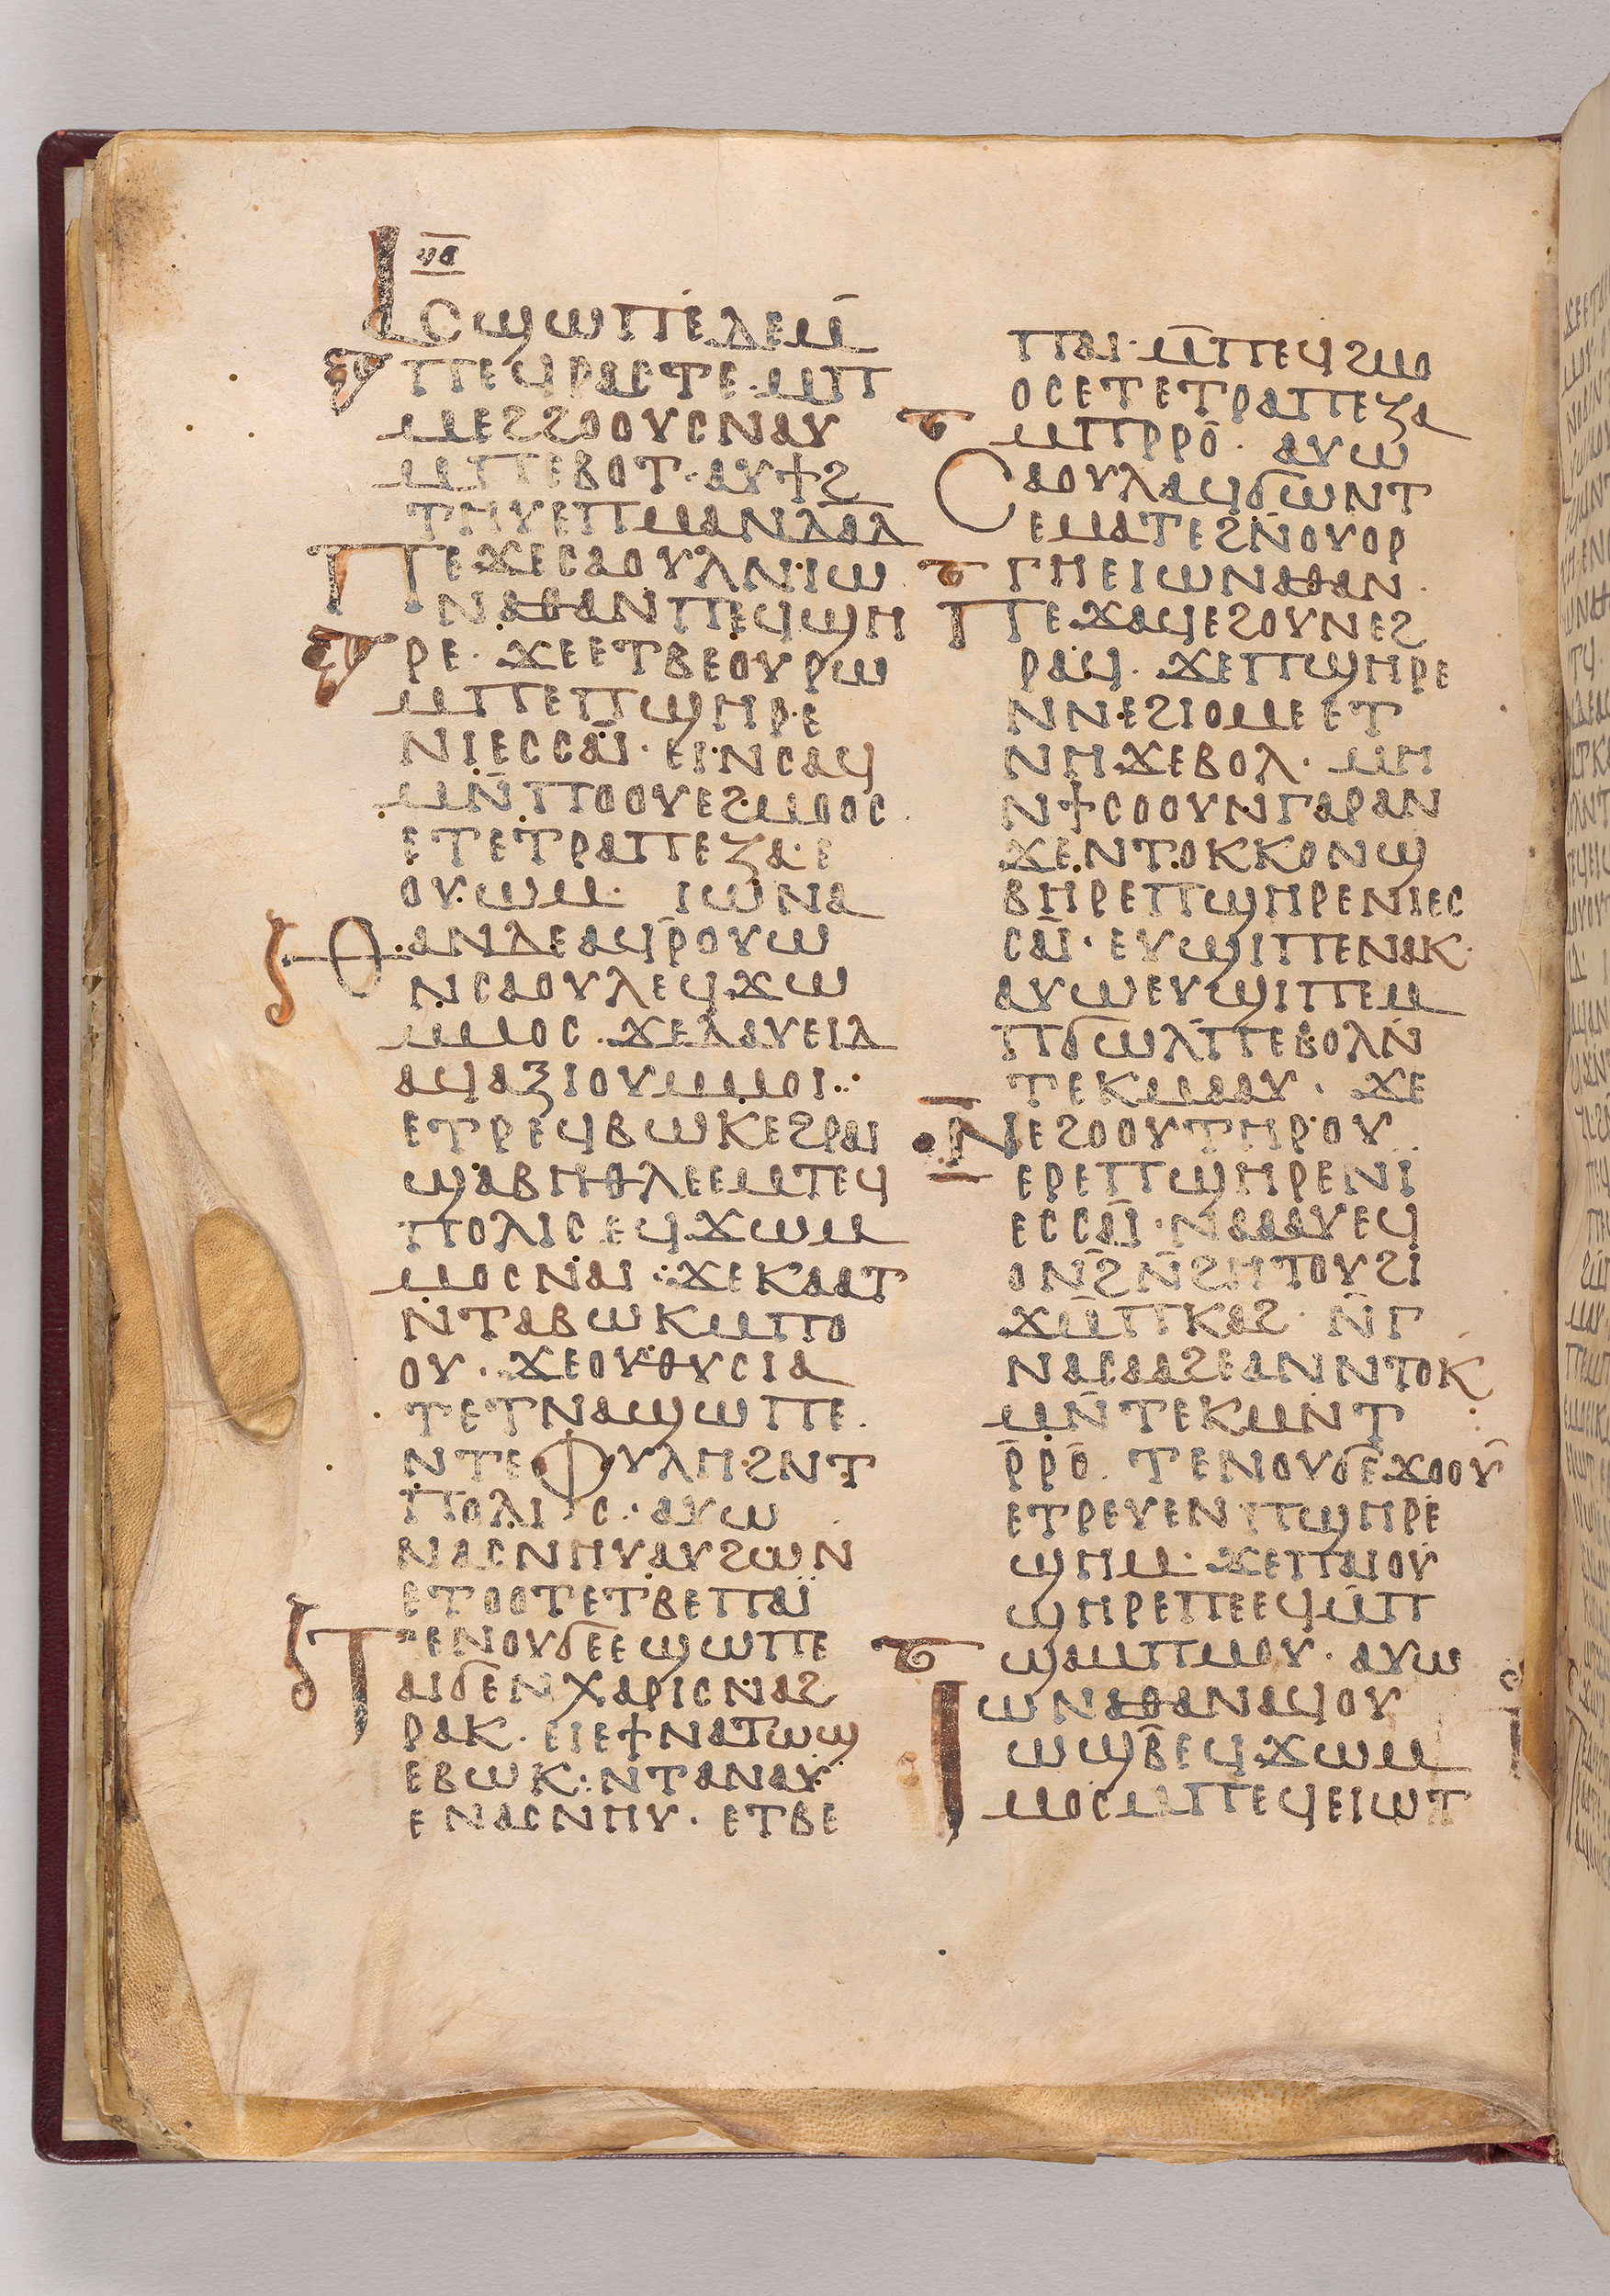 ⲛⲁ
ⲁⲥϣⲱⲡⲉⲇⲉⲙ̄
ⲡⲉϥⲣⲁⲥⲧⲉ·ⲙⲡ
ⲙⲉϩϩⲟⲟⲩⲥⲛⲁⲩ
ⲙⲡⲉⲃⲟⲧ·ⲁⲩϯϩ
ⲧⲏⲩⲉⲡⲙⲁⲛⲇⲁ̄ⲇ
ⲡⲉϫⲉⲥⲁⲟⲩⲗⲛⲓⲱ
ⲛⲁⲑⲁⲛⲡⲉϥϣⲏ
ⲣⲉ·ϫⲉⲉⲧⲃⲉⲟⲩⲣⲱ
ⲙⲡⲉⲡϣⲏⲣⲉ
ⲛⲓⲉⲥⲥⲁⲓ̈·ⲉⲓⲛⲥⲁϥ
ⲙⲛ̄ⲡⲟⲟⲩⲉϩⲙⲟⲟⲥ
ⲉⲧⲉⲧⲣⲁⲡⲉⲍⲁ·ⲉ
ⲟⲩⲱⲙ· ⲓⲱⲛⲁ
ⲑⲁⲛⲇⲉⲁϥⲣ̄ⲟⲩⲱ
ⲛⲥⲁⲟⲩⲗⲉϥϫⲱ
ⲙⲙⲟⲥ·ϫⲉⲇⲁⲩⲉⲓⲇ
ⲁϥⲁⲝⲓⲟⲩⲙⲙⲟⲓ:·
ⲉⲧⲣⲉϥⲃⲱⲕⲉϩⲣⲁⲓ
ϣⲁⲃⲏⲑⲗⲉⲉⲙⲧⲉϥ
ⲡⲟⲗⲓⲥⲉϥϫⲱⲙ
ⲙⲟⲥⲛⲁⲓ·ϫⲉⲕⲁⲁⲧ
ⲛⲧⲁⲃⲱⲕⲙⲡⲟ
ⲟⲩ·ϫⲉⲟⲩⲑⲩⲥⲓⲁ
ⲧⲉⲧⲛⲁϣⲱⲡⲉ·
ⲛⲧⲉⲫⲩⲗⲏϩⲛⲧ
ⲡⲟⲗⲓⲥ·ⲁⲩⲱ
ⲛⲁⲥⲛⲏⲩⲁⲩϩⲱⲛ
ⲉⲧⲟⲟⲧⲉⲧⲃⲉⲡⲁⲓ̈
ⲧⲉⲛⲟⲩϭⲉⲉϣⲱⲡⲉ
ⲁⲓϭⲉⲛⲭⲁⲣⲓⲥⲛⲁϩ
ⲣⲁⲕ·ⲉⲓⲉϯⲛⲁⲧⲱϣ
ⲉⲃⲱⲕ:ⲛⲧⲁⲛⲁⲩ
ⲉⲛⲁⲥⲛⲏⲩ·ⲉⲧⲃⲉ
ⲡⲁⲓ·ⲙ̄ⲡⲉϥϩⲙⲟ
ⲟⲥⲉⲧⲉⲧⲣⲁⲡⲉⲍⲁ
ⲙⲡⲣⲣⲟ̄·ⲁⲩⲱ
ⲥⲁⲟⲩⲗⲁϥϭⲱⲛⲧ
ⲉⲙⲁⲧⲉϩⲛ̄ⲟⲩⲟⲣ
ⲅⲏⲉⲓⲱⲛⲁⲑⲁⲛ·
ⲡⲉϫⲁϥⲉϩⲟⲩⲛⲉϩ
ⲣⲁϥ·ϫⲉⲡϣⲏⲣⲉ
ⲛⲛⲉϩⲓⲟⲙⲉⲉⲧ
ⲛⲏϫⲉⲃⲟⲗ·ⲙⲏ
ⲛϯⲥⲟⲟⲩⲛⲅⲁⲣⲁⲛ
ϫⲉⲛⲧⲟⲕⲕⲟⲛϣ
ⲃⲏⲣⲉⲡϣⲏⲣⲉⲛⲓⲉⲥ
ⲥⲁⲓ̈·ⲉⲩϣⲓⲡⲉⲛⲁⲕ·
ⲁⲩⲱⲉⲩϣⲓⲡⲉⲙ
ⲡϭⲱⲗⲡⲉⲃⲟⲗⲛ̄
ⲧⲉⲕⲙⲁⲁⲩ·ϫⲉ
ⲛⲉϩⲟⲟⲩⲧⲏⲣⲟⲩ
ⲉⲣⲉⲡϣⲏⲣⲉⲛⲓ
ⲉⲥⲥⲁⲓ̈·ⲛⲁⲁⲁⲩⲉϥ
ⲟⲛϩ̄ⲛ̄ϩⲏⲧⲟⲩϩⲓ
ϫⲙ̄ⲡⲕⲁϩ·ⲛ̄ⲅ
ⲛⲁⲥⲁⲁϩⲉⲁⲛⲛⲧⲟⲕ
ⲙⲛ̄ⲧⲉⲕⲙⲛ̄ⲧ
ⲣ̄ⲣⲟ̄·ⲧⲉⲛⲟⲩϭⲉϫⲟⲟⲩ̄
ⲉⲧⲣⲉⲩⲉⲛⲡϣⲏⲣⲉ
ϣⲏⲙ·ϫⲉⲡⲁⲓⲟⲩ
ϣⲏⲣⲉⲡⲉⲉϥⲙ̄ⲡ
ϣⲁⲙⲡⲙⲟⲩ·ⲁⲩⲱ
ⲓⲱⲛⲁⲑⲁⲛⲁϥⲟⲩ
ⲱϣⲃ̄ⲉϥϫⲱⲙ
ⲙⲟⲥⲙⲡⲉϥⲉⲓⲱⲧ